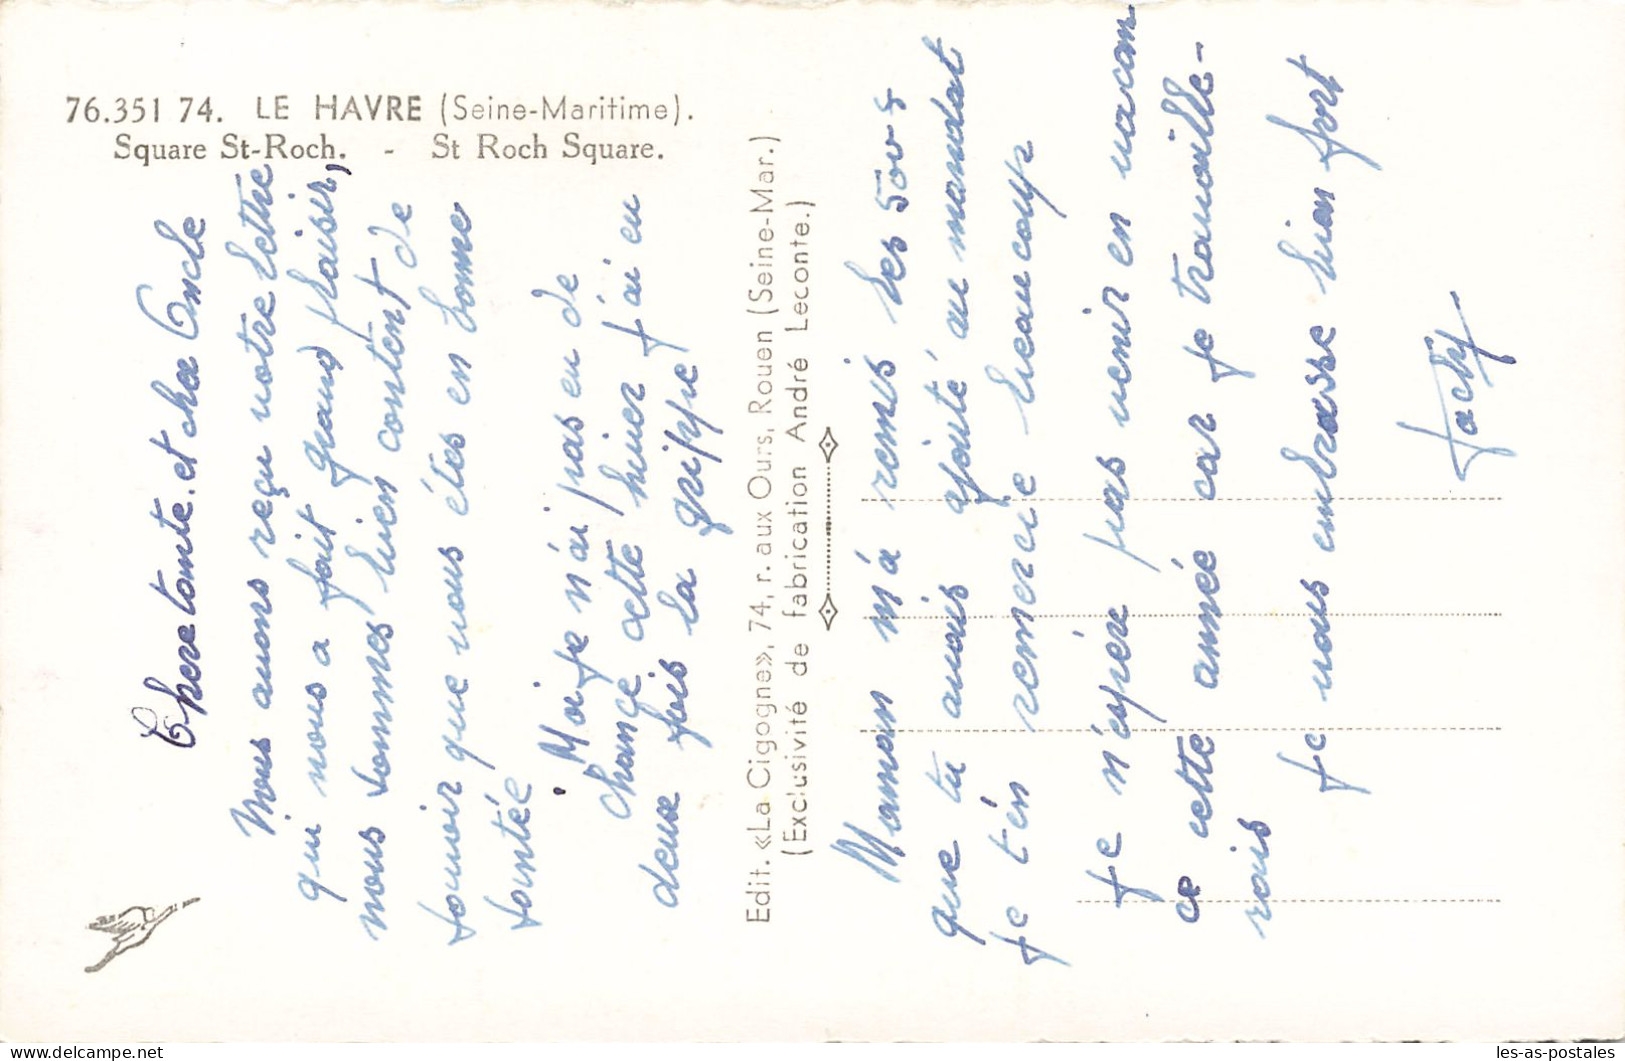 76.351 74. LE HAVRE (Seine-Maritime).
Square St-Roch. - St Roch Square.
Chere tante. et cher Oncle
Nous avons reçu votre lettre
qui nous a fait grand plaisir,
nous sommes bien content de
savoir que vous êtes en bonne
santée
Moi je n'ai pas eu de
chance cette hiver j'ai eu
deux fois la grippe
Edit. «La Cigogne», 74, r. aux Ours, Rouen (Seine-Mar.)
(Exclusivité de fabrication André Leconte.)
Maman m'a remis les 500 f
que tu avais ajouté au mandat
je t'én remercie beaucoup
je n'espère pas venir en vacan
ce cette année car je travaille-
rais
je vous embrasse bien fort
Jacky
les-as-postales